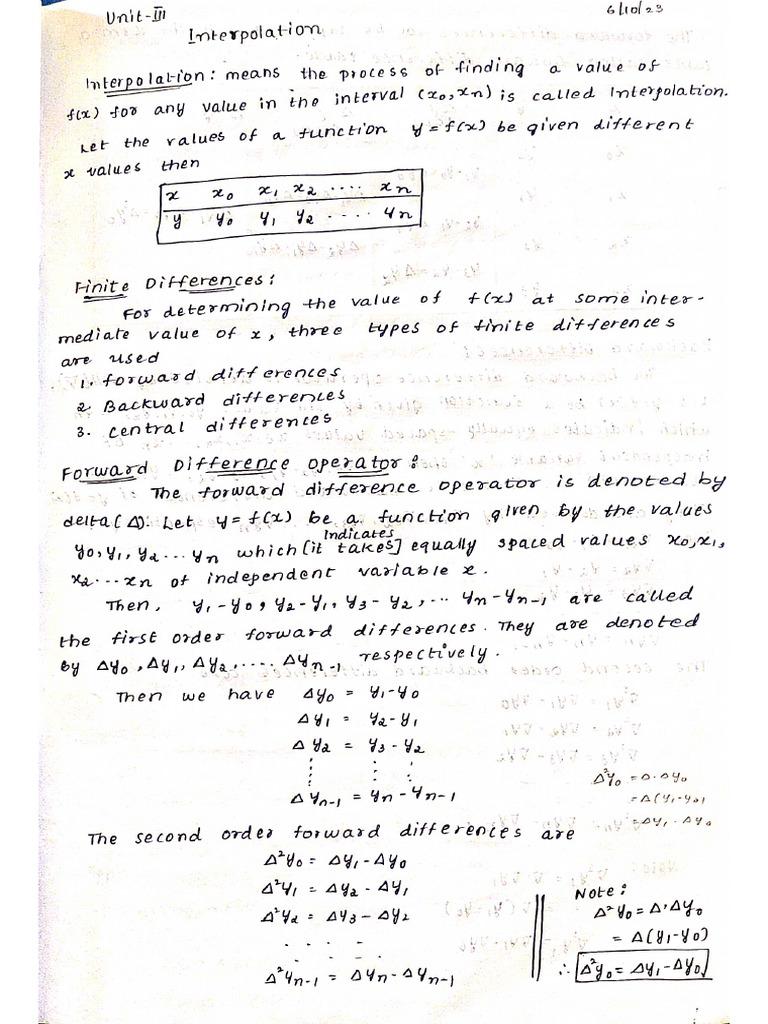 Unit-III
6/10/23
Interpolation
Interpolation: means the process of finding a value of
f(x) for any value in the interval (x₀,xₙ) is called Interpolation.
Let the values of a function y=f(x) be given different
x values then
x x₀ x₁ x₂ .... xₙ
y y₀ y₁ y₂ .... yₙ
Finite Differences:
For determining the value of f(x) at some inter-
mediate value of x, three types of finite differences
are used
1. forward differences
2. Backward differences
3. Central differences
Forward Difference operator:
The forward difference operator is denoted by
delta(Δ). Let y=f(x) be a function given by the values
Indicates
y₀,y₁,y₂...yₙ which [it takes] equally spaced values x₀,x₁,
x₂...xₙ of independent variable x.
Then, y₁-y₀, y₂-y₁, y₃-y₂,... yₙ-yₙ₋₁ are called
the first order forward differences. They are denoted
by Δy₀, Δy₁, Δy₂,..... Δyₙ₋₁ respectively.
Then we have Δy₀ = y₁-y₀
Δy₁ = y₂-y₁
Δy₂ = y₃-y₂
⋮ ⋮ ⋮
Δyₙ₋₁ = yₙ-yₙ₋₁
Δ²y₀ = Δ·Δy₀
= Δ(y₁-y₀)
= Δy₁-Δy₀
The second order forward differences are
Δ²y₀ = Δy₁-Δy₀
Δ²y₁ = Δy₂-Δy₁
Δ²y₂ = Δy₃-Δy₂
. . . .
Δ²yₙ₋₁ = Δyₙ-Δyₙ₋₁
Note:
Δ²y₀ = Δ·Δy₀
= Δ(y₁-y₀)
∴ Δ²y₀ = Δy₁-Δy₀